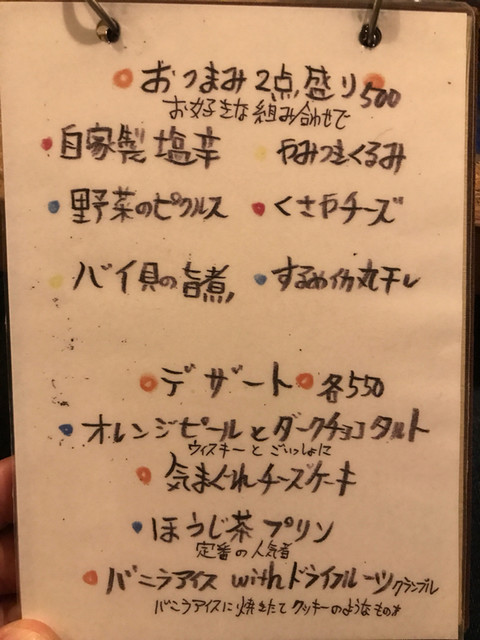 おつまみ2点盛り500
お好きな組み合わせで
自家製塩辛 やみつきくるみ
野菜のピクルス くさやチーズ
バイ貝の旨煮 するめイカ丸干し
デザート 各550
オレンジピールとダークチョコタルト
ウィスキーとごいっしょに
気まぐれチーズケーキ
ほうじ茶プリン
定番の人気者
バニラアイス withドライフルーツクランブル
バニラアイスに焼きたてクッキーのようなもの